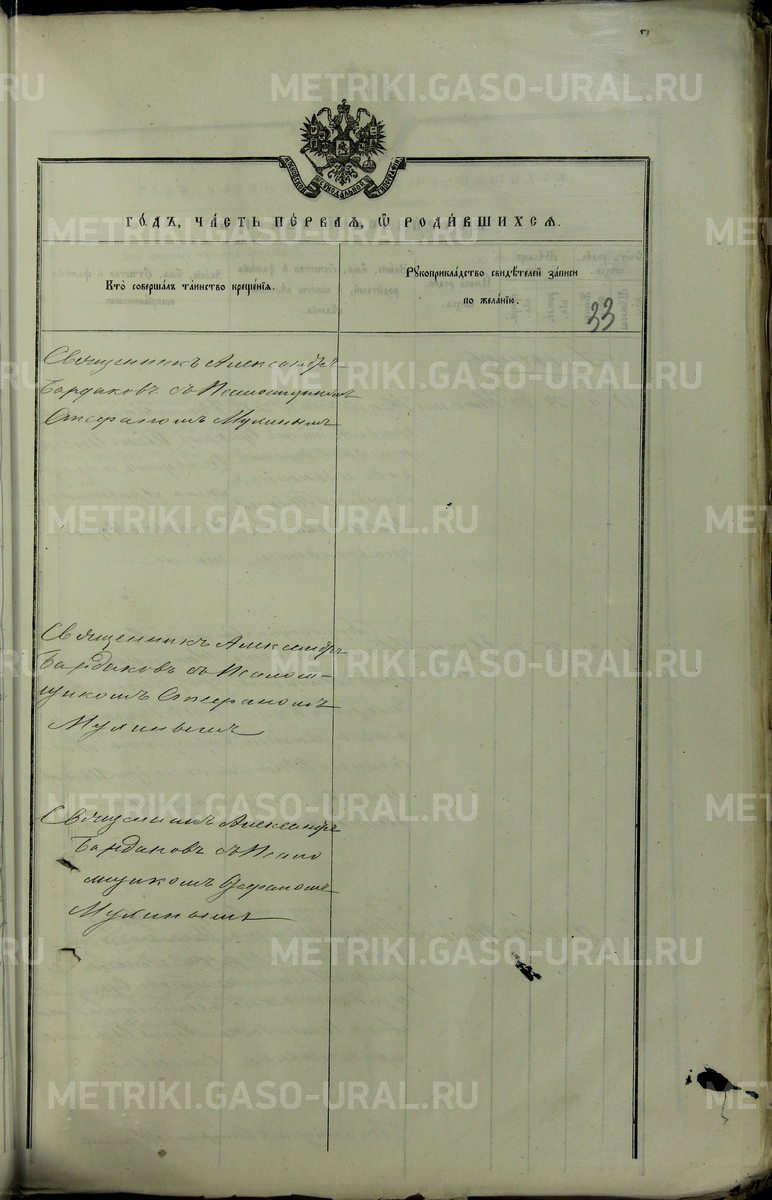 METRIKI.GASO-URAL.RU
МОСКОВСКОЙ СѴНОДАЛЬНОЙ ТИПОГРАФІИ
ГО́ДЪ, ЧА́СТЬ ПЕ́РВАЯ, Ѿ РОДИ́ВШИХСЯ.
Кто̀ совершалъ та́инство креще́нїя.
Рꙋкоприкла́дство свидѣ́телей за́писи
по жела́нїю.
33
Священникъ Александръ
Бардаковъ съ Псаломщикомъ
Стефаномъ Мухинымъ
Священникъ Александръ
Бардаковъ съ Псалом-
щикомъ Стефаномъ
Мухинымъ
Священникъ Александръ
Бардаковъ съ Псало
мщикомъ Стефаномъ
Мухинымъ
METRIKI.GASO-URAL.RU
METRIKI.GASO-URAL.RU
METRIKI.GASO-URAL.RU
METRIKI.GASO-URAL.RU
METRIKI.GASO-URAL.RU
METRIKI.GASO-URAL.RU
METRIKI.GASO-URAL.RU